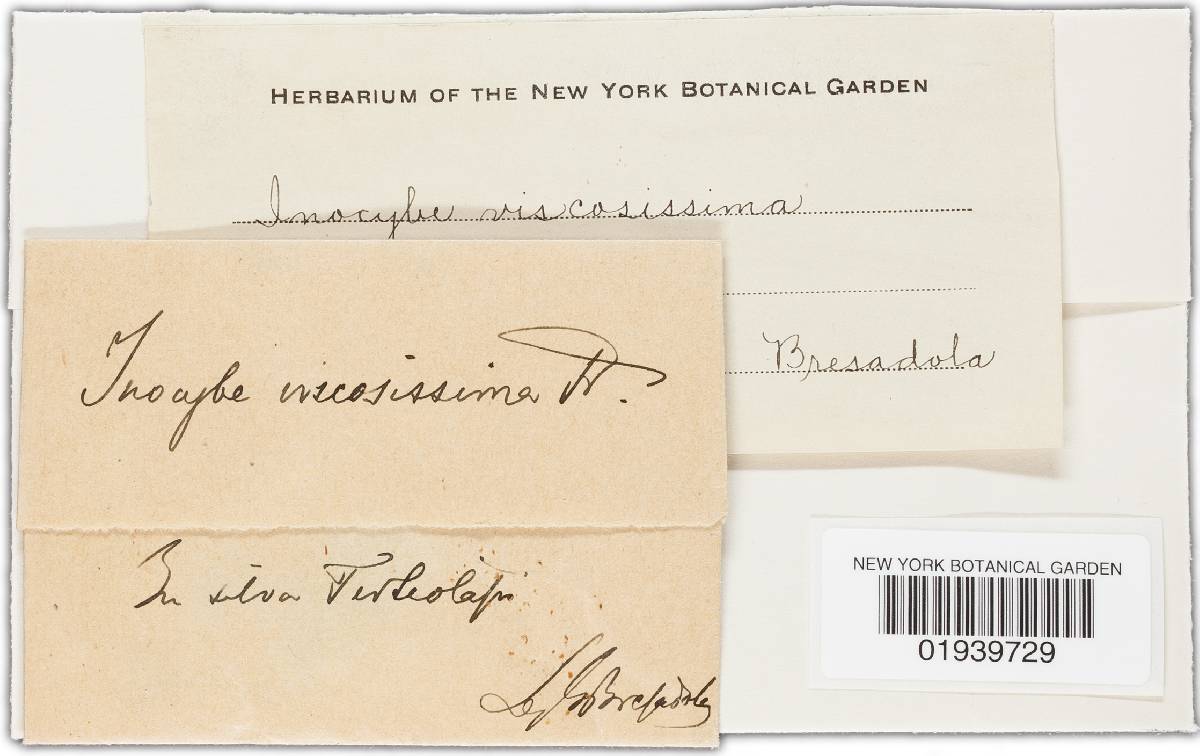 HERBARIUM OF THE NEW YORK BOTANICAL GARDEN
Inocybe viscosissima
Bresadola
Inocybe viscosissima Fr.
In silva
Bresadola
NEW YORK BOTANICAL GARDEN
01939729